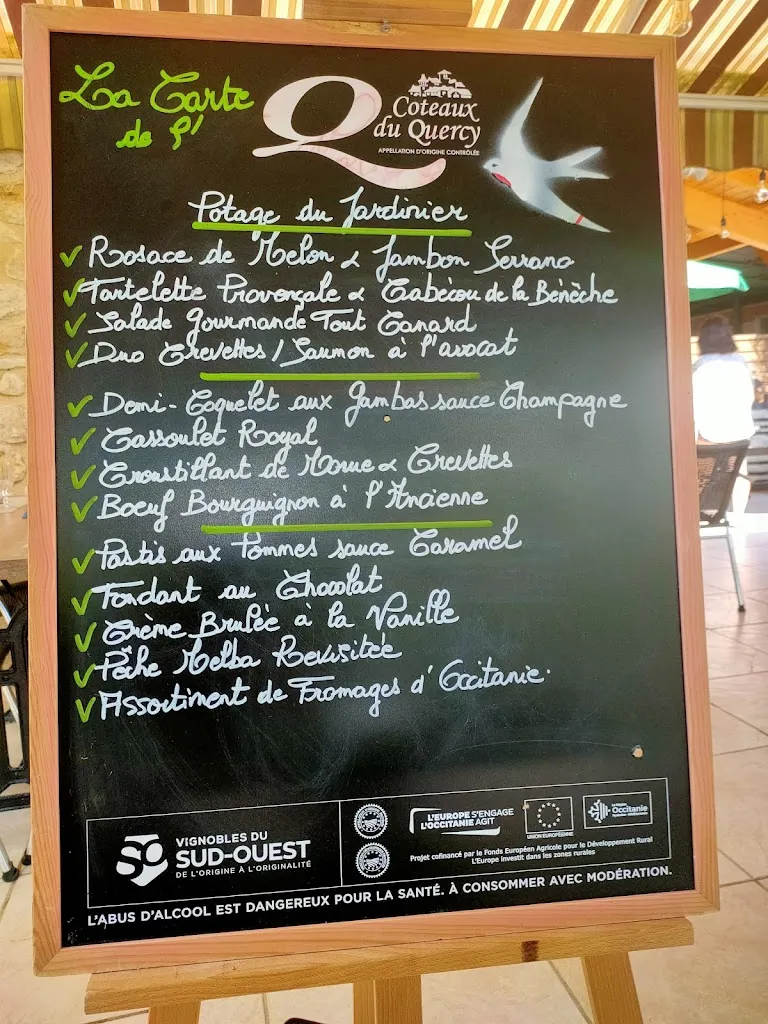 La Carte
de l'
Q
Coteaux
du Quercy
APPELLATION D'ORIGINE CONTRÔLÉE
Potage du Jardinier
✓ Rosace de Melon & Jambon Serrano
✓ Tartelette Provençale & Cabécou de la Bénèche
✓ Salade gourmande Tout Canard
✓ Duo Crevettes / Saumon à l'avocat
✓ Demi-Coquelet aux Gambas sauce Champagne
✓ Cassoulet Royal
✓ Croustillant de Morue & Crevettes
✓ Boeuf Bourguignon à l'Ancienne
✓ Pastis aux Pommes sauce Caramel
✓ Fondant au Chocolat
✓ Crème Brulée à la Vanille
✓ Pêche Melba Revisitée
✓ Assortiment de Fromages d'Occitanie.
SO
VIGNOBLES DU
SUD-OUEST
DE L'ORIGINE À L'ORIGINALITÉ
L'EUROPE S'ENGAGE
L'OCCITANIE AGIT
UNION EUROPÉENNE
Occitanie
Projet cofinancé par le Fonds Européen Agricole pour le Développement Rural
L'Europe investit dans les zones rurales
L'ABUS D'ALCOOL EST DANGEREUX POUR LA SANTÉ. À CONSOMMER AVEC MODÉRATION.